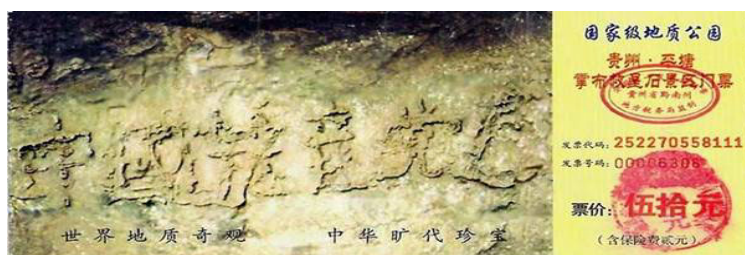 中国共产党亡
世界地质奇观 中华旷代珍宝
国家级地质公园
贵州·平塘
掌布救星石景区门票
贵州省黔南州
地方税务局监制
发票代码: 252270558111
发票号码:
票价: 伍拾元
(含保险费贰元)